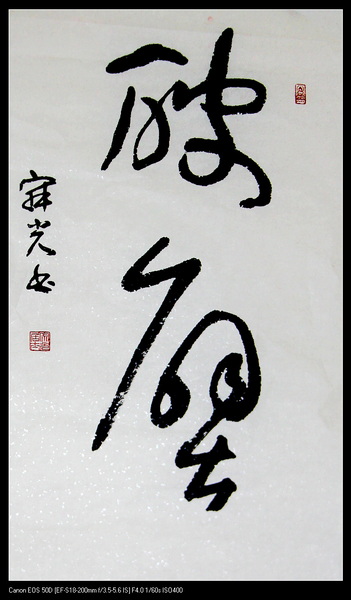 破壁
光书
Canon EOS 50D [EF-S18-200mm f/3.5-5.6 IS] F4.0 1/60s ISO400